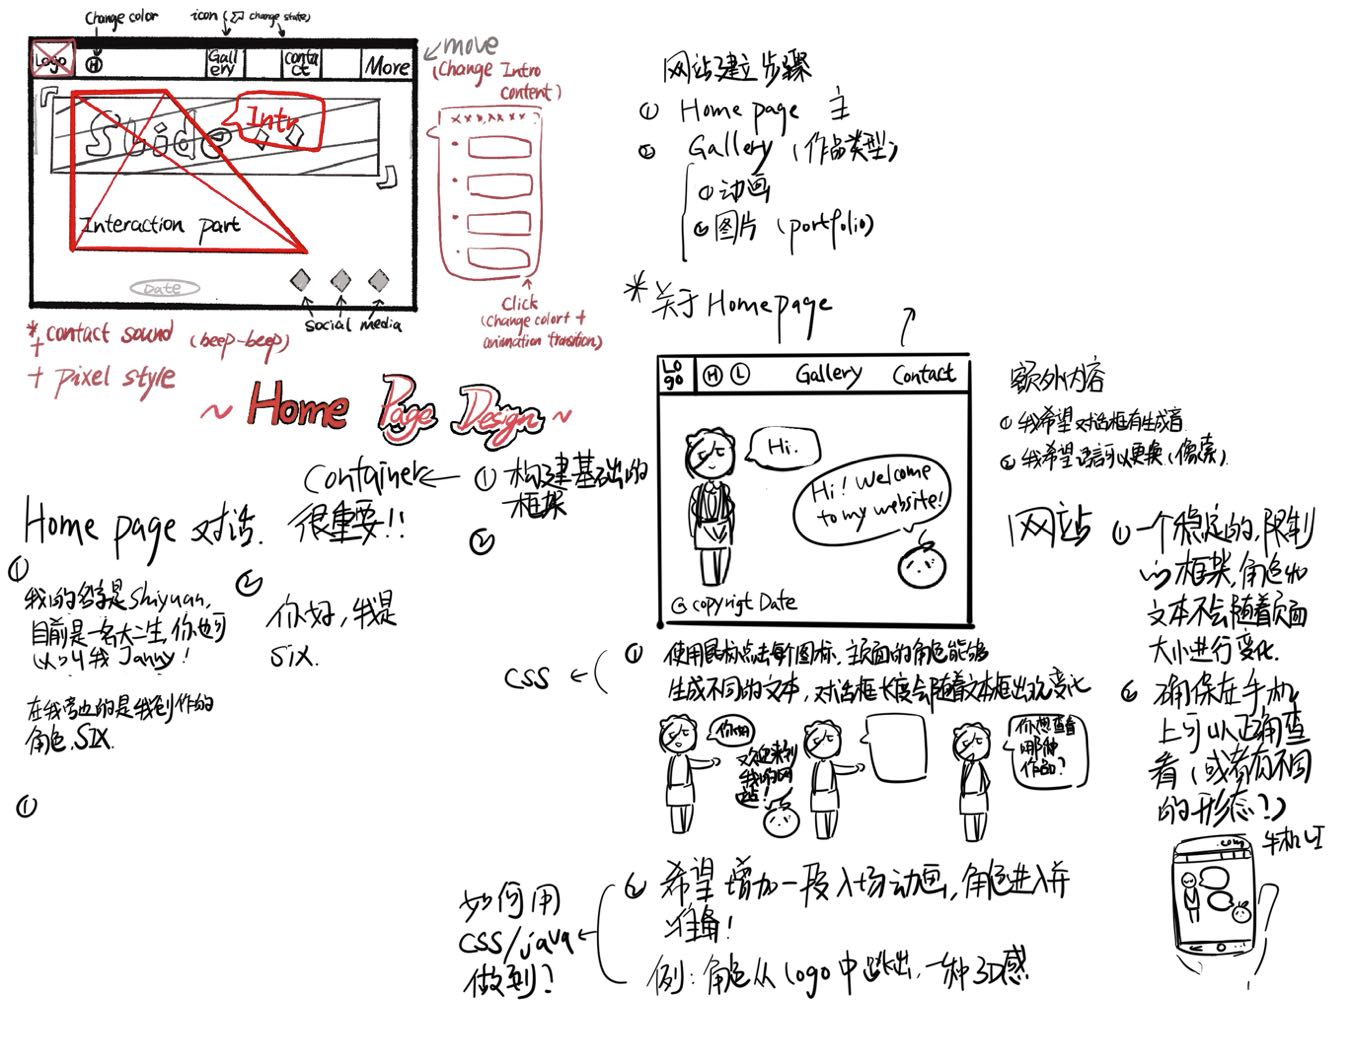 Change color
icon (change state)
Logo
H
Gallery
contact
More
Slide
Intr
Interaction part
Date
social media
move
(Change Intro content)
xxxxxxx
Click
(Change colort + animation transition)
* contact sound (beep-beep)
+
+ pixel style
~ Home Page Design ~
网站建立步骤
① Home page 主
② Gallery (作品类型)
①动画
②图片 (portfolio)
* 关于Homepage
Logo
H L
Gallery Contact
Hi.
Hi! Welcome
to my website!
@ copyrigt Date
额外内容
① 我希望对话框有生成音
② 我希望语言可以更换(像素)
Container ← ① 构建基础的
框架
很重要!!
②
Home page 对话.
①
我的名字是Shiyuan,
目前是一名大二生,你也可
以叫我Janny!
在我旁边的是我创作的
角色,SIX.
②
你好,我是
SIX.
①
网站
① 一个稳定的,限制
的框架,角色和
文本不会随着页面
大小进行变化.
② 确保在手机
上可以正确查
看(或者有不同
的形态?)
手机UI
Logo
CSS ←
① 使用鼠标点击每个图标,主页面的角色能够
生成不同的文本,对话框长度会随着文本框出现变化
你好
欢迎来到
我的网
站!
你想查看
哪种
作品?
如何用
CSS/java ←
做到?
② 希望增加一段入场动画,角色进入并
准备!
例:角色从logo中跳出,一种3D感